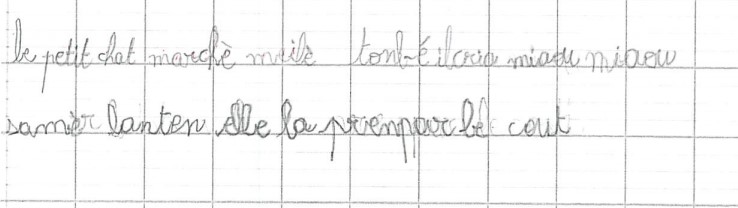 le petit chat marchè meile tonbé ilcria miaou miaou
samèr lanten elle la prenparlé cout